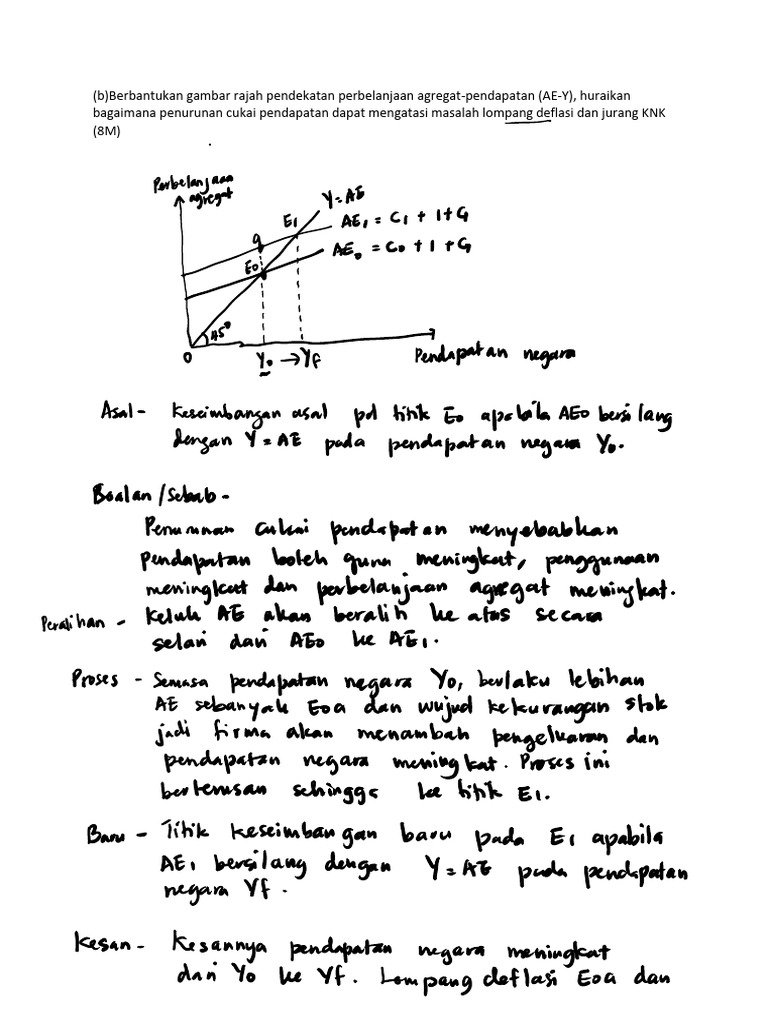 (b)Berbantukan gambar rajah pendekatan perbelanjaan agregat-pendapatan (AE-Y), huraikan
bagaimana penurunan cukai pendapatan dapat mengatasi masalah lompang deflasi dan jurang KNK
(8M)
Perbelanjaan
agregat
Y=AE
E1
AE1 = C1 + I + G
a
AE0 = C0 + I + G
E0
45°
0
Y0 → Yf
Pendapatan negara
Asal - Keseimbangan asal pd titik E0 apabila AE0 bersilang
dengan Y = AE pada pendapatan negara Y0.
Boalan/Sebab -
Penurunan cukai pendapatan menyebabkan
Pendapatan boleh guna meningkat, penggunaan
meningkat dan perbelanjaan agregat meningkat.
Peralihan - Keluk AE akan beralih ke atas secara
selari dari AE0 ke AE1.
Proses - Semasa pendapatan negara Y0, berlaku lebihan
AE sebanyak E0a dan wujud kekurangan stok
jadi firma akan menambah pengeluaran dan
pendapatan negara meningkat. Proses ini
berterusan sehingga ke titik E1.
Baru - Titik keseimbangan baru pada E1 apabila
AE1 bersilang dengan Y = AE pada pendapatan
negara Yf.
Kesan - Kesannya pendapatan negara meningkat
dari Y0 ke Yf. Lompang deflasi E0a dan